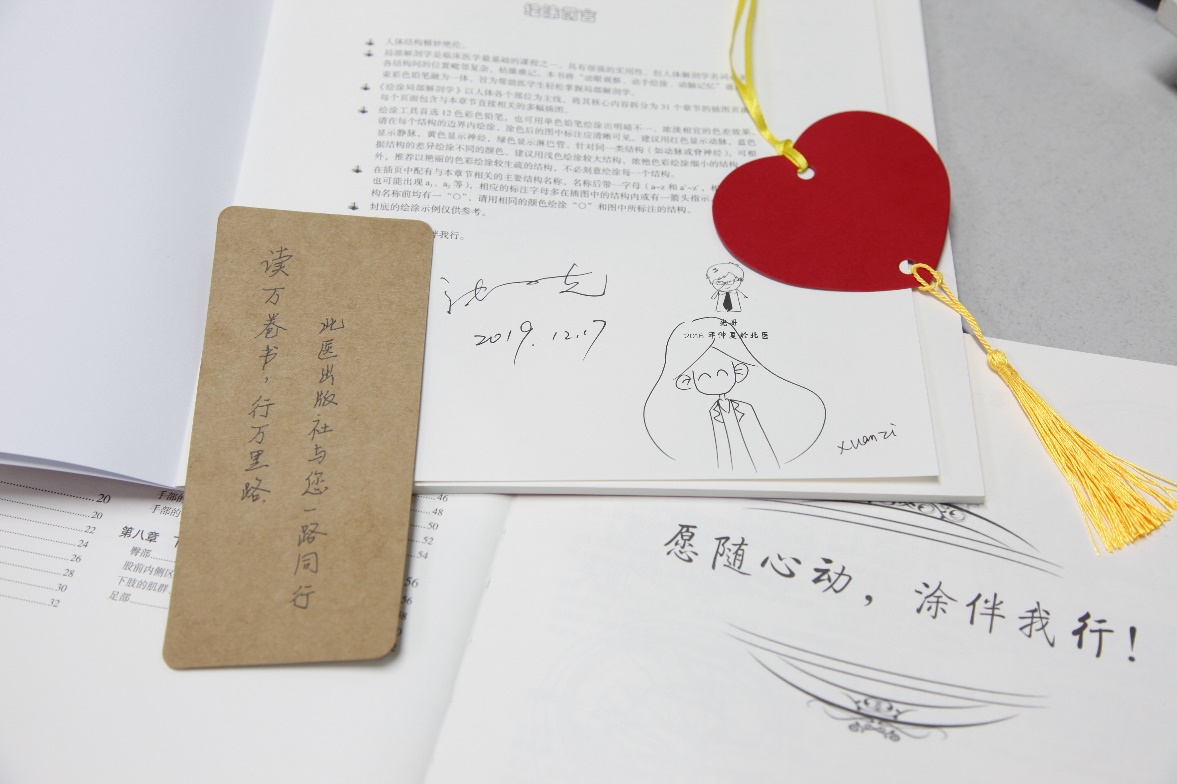 绘涂前言
人体结构精妙绝伦。
局部解剖学是临床医学最基础的课程之一，具有很强的实用性，但人体解剖学名词
各结构间的位置毗邻复杂，枯燥难记。本书将“动眼观察、动手绘涂、动脑记忆”
束彩色铅笔融为一体，旨为帮助医学生轻松掌握局部解剖学。
《绘涂局部解剖学》以人体各个部位为主线，将其核心内容拆分为31个章节的插图页
每个页面包含与本章节直接相关的多幅插图。
绘涂工具首选12色彩色铅笔，也可用单色铅笔绘涂出明暗不一、浓淡相宜的色差效果。
请在每个结构的边界内绘涂，涂色后的图中标注应清晰可见。建议用红色显示动脉、蓝色
显示静脉、黄色显示神经、绿色显示淋巴管。针对同一类结构（如动脉或脊神经），可根
据结构的差异绘涂不同的颜色。建议用浅色绘涂较大结构，浓艳色彩绘涂细小的结构
外，推荐以艳丽的色彩绘涂较生疏的结构，不必刻意绘涂每一个结构。
在插页中配有与本章节相关的主要结构名称，名称后带一字母（a-z 和 a'-z'，
也可能出现 a₁、a₂ 等），相应的标注字母多在插图中的结构内或有一箭头指示。
构名称前均有一“○”，请用相同的颜色绘涂“○”和图中所标注的结构。
封底的绘涂示例仅供参考。
伴我行。
2019.12.17
xuanzi
读万卷书，行万里路
北医出版社与您一路同行
20
20
22
24
26
28
30
32
手部的
第八章 下
臀部
股前内侧区
下肢的肌群
足部
46
48
50
52
54
56
愿随心动，涂伴我行！